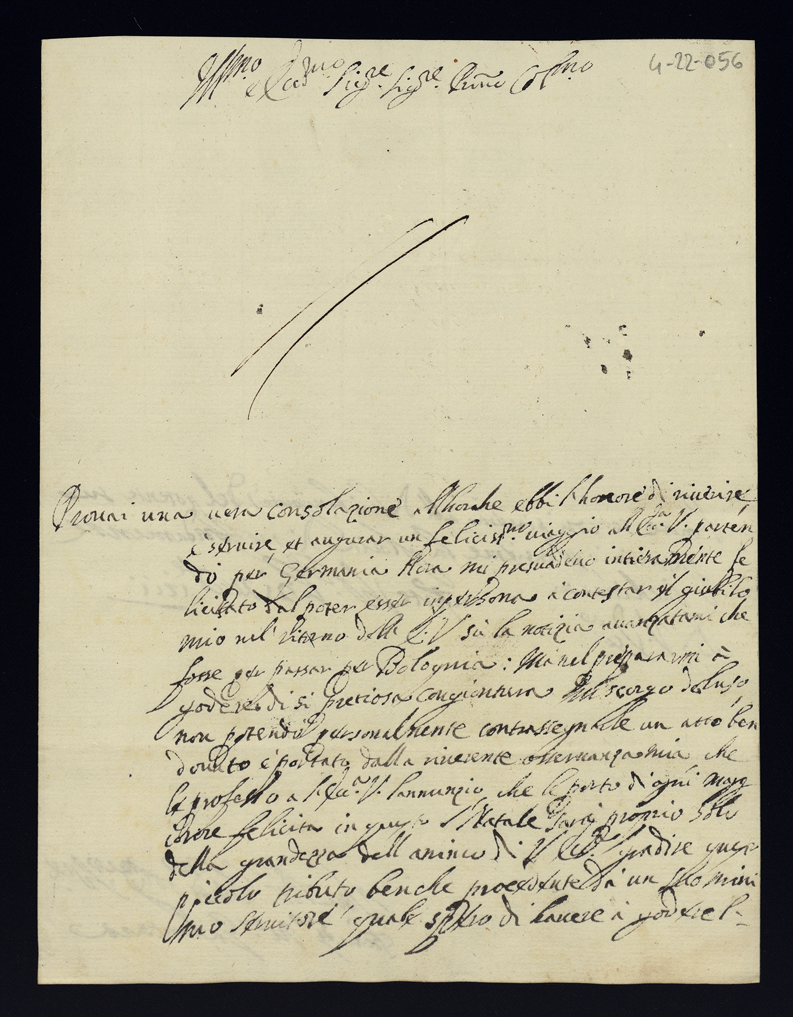 4-22-056
Ill.mo et Ecc.mo Sig.re Sig.re Prone Col.mo
Provai una vera consolazione allhorche ebbi l'honore di riverire,
e servire, et augurar un felicis.mo viaggio all Ecc.a V. parten
do per Germania. Hora mi persuadevo intieramente fe
licitato dal poter esser in persona a contestar il giubilo
mio nel ritorno dell E. V. su la notizia avanzatami che
fosse per passar per Bolognia: Ma nel prepararmi à
godere di si pretiosa congiontura mi scorgo deluso
non potendo personalmente contrassegnarle un atto ben
dovuto e portato dalla riverente osservanza mia che
le professo a l'Ecc.a V. l'annunzio che le porto di ogni magg
iore felicita in questo S Natale sarà proprio solo
della grandezza dell animo di V Ecc.a gradire questo
piccolo tributo benche procedente da un suo mini
mo servitore quale spero di havere à godere l'-